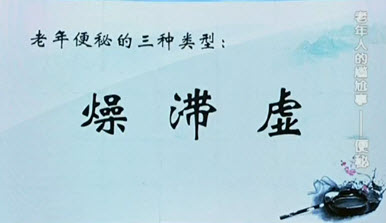 老年便秘的三种类型：
燥 滞 虚
老年人的尴尬事——便秘